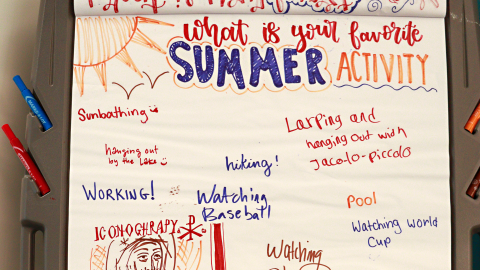 what is your favorite
SUMMER ACTIVITY
Sunbathing
Larping and
hanging out with
Jacolo-Piccolo
hanging out
by the lake
hiking!
WORKING!
Watching
Baseball
Pool
Watching World
Cup
ICONOGHRAPY
Watching